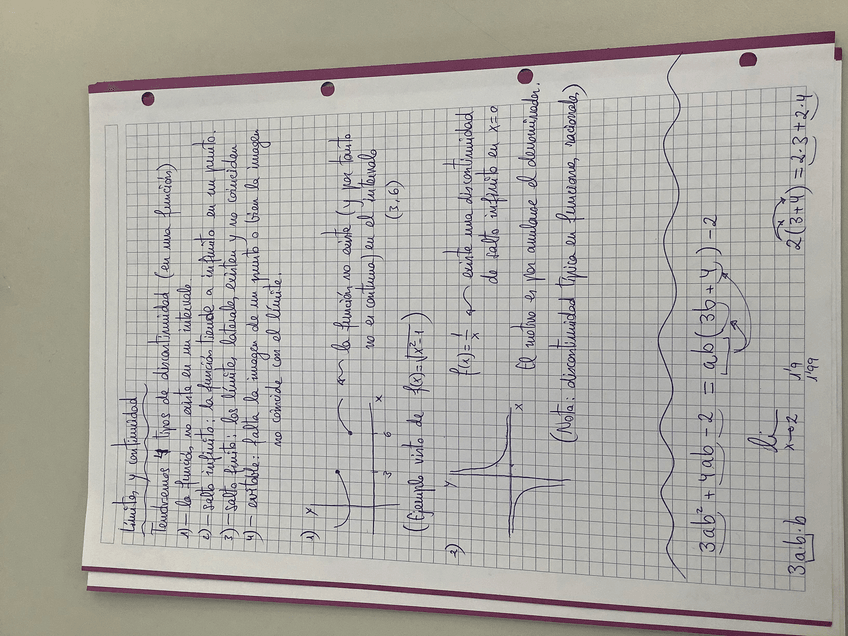 Límites y continuidad
Tendremos 4 tipos de discontinuidad (en una función)
1) — la función no existe en un intervalo
2) — salto infinito: la función tiende a infinito en un punto.
3) — salto finito: los límites laterales existen y no coinciden
4) — evitable: falta la imagen de un punto o bien la imagen
no coincide con el límite.
1)
y
3
6
x
la función no existe (y por tanto
no es continua) en el intervalo
(3,6)
(Ejemplo visto de f(x)=√x²-1)
2)
y
x
f(x)=1/x
existe una discontinuidad
de salto infinito en x=0
El motivo es por anularse el denominador.
(Nota: discontinuidad típica en funciones racionales)
3ab² + 4ab - 2 = ab(3b+4) - 2
3a·b·b
lim
x→2
1'9
1'99
2(3+4) = 2·3+2·4